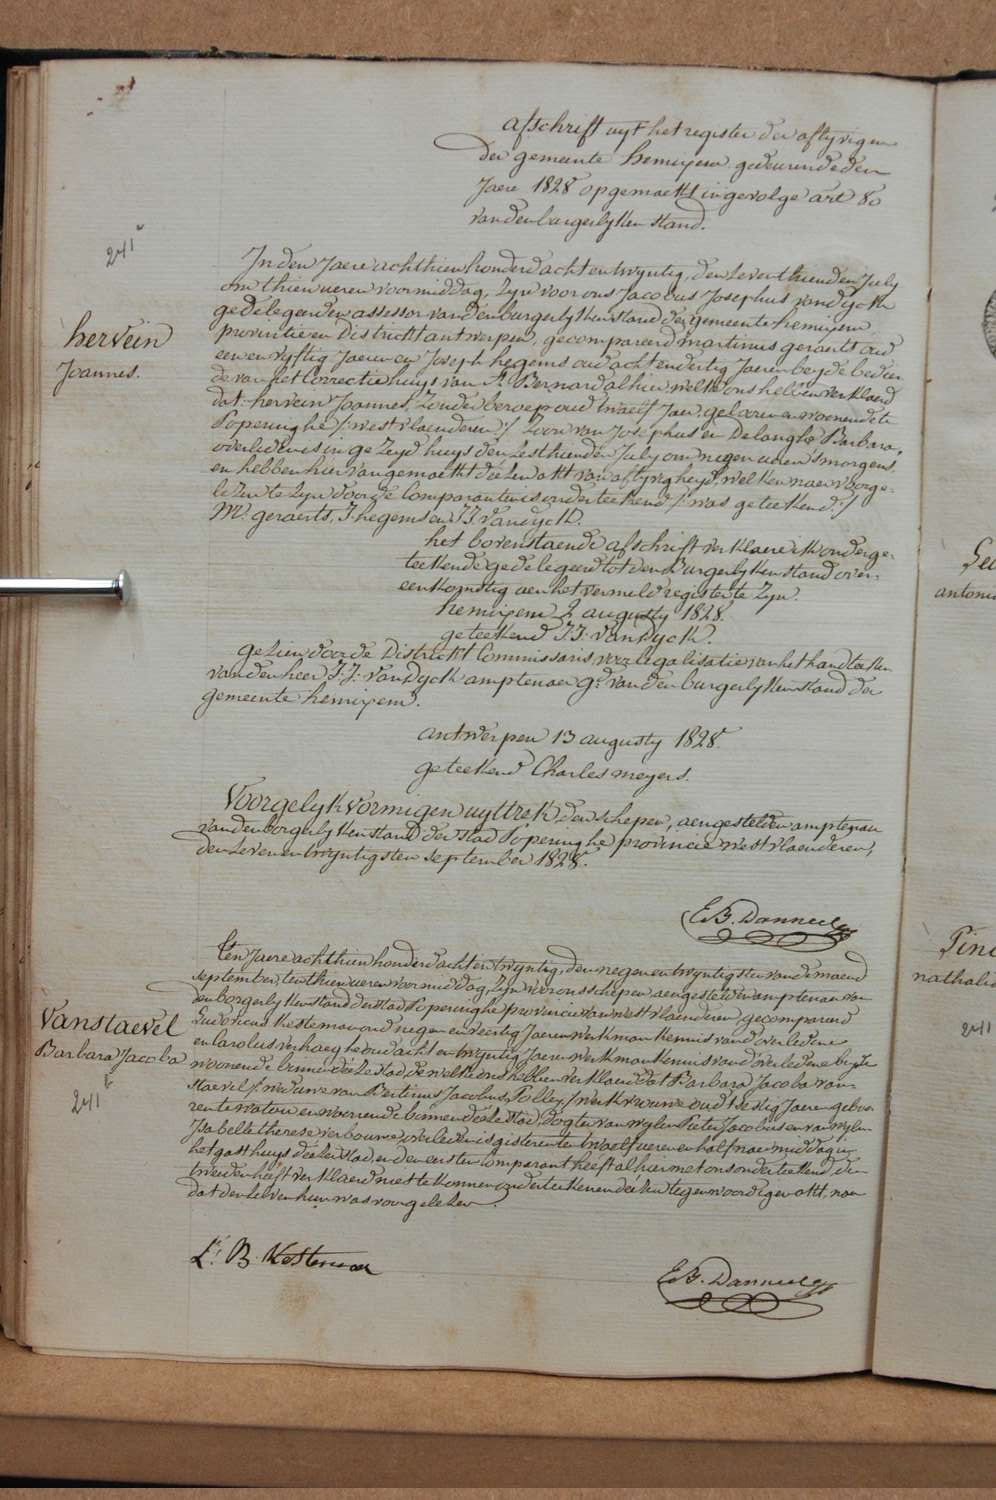 afschrift uyt het register der aflyvigen
der gemeente hemixem geduerende den
Jaere 1828 opgemaekt ingevolge art 80
van den burgerlyken stand.
241
hervein
Joannes.
In den Jaere achthien honderd acht en twyntig, den seventhienden July
om thien ueren voormiddag, Zyn voor ons Jacobus Josephus van dyck
gedelegeerden assessor van den burgerlyken stand der gemeente hemixem
provintie en District antwerpen, gecompareerd martinus geraerts oud
een en vyftig Jaeren en Joseph hegems oud acht en dertig Jaeren beyde bedien
de van het Correctiehuys van St Bernard alhier welke ons hebben verklaerd
dat hervein Joannes, Zonder beroep oud twaelf Jaer, geboren en woonende te
Poperinghe /: westvlaenderen :/ Zoon van Josephus en Delanghe Barbara,
overleden is in gezeyd huys den zesthienden July om negen ueren smorgens,
en hebben hier van gemaekt deézen akt van aflyvigheyd, welken naer voorge-
lezen te zyn door de Comparanten is onderteekend /: was geteekend :/
M. geraerts, J. hegems en J.J. vandyck.
het bovenstaende afschrift verklaere ik onderge-
teekende gedelegeerd tot den Burgerlyken stand over-
eenkomstig aen het vermeld register te Zyn.
hemixem 2 augusty 1828.
geteekend J.J. VanDyck.
gezien door de District Commissaris voor legalisatie van het handteeken
van den heer J.J. VanDyck amptenaer gd. van den burgerlyken stand der
gemeente hemixem.
antwerpen 13 augusty 1828.
geteekend Charles meyers.
Voor gelykvormigen uyttrek, den schepen, aengestelden amptenaer
van den borgerlyken stand der stad Poperinghe provincie westvlaenderen,
den zeven en twyntigsten september 1828.
E B. Danneel
Vanstaevel
Barbara Jacoba
241
Ten Jaere achthien honderd acht en twyntig, den negen en twyntigsten van de maend
september, ten thien ueren voormiddag, Zyn voor ons schepen aengestelden amptenaer van
den borgerlyken stand der stad Poperinghe provincie van westvlaenderen, gecompareerd
Ludovicus Kesteman oud negen en veertig Jaeren werkman kennis van d'overledene
en Carolus verhaeghe oud acht en twyntig Jaeren werkman kennis van d'overledene beyde
woonende binnen deéze stad, de welke ons hebben verklaerd dat Barbara Jacoba van-
staevel /: weduwe van Bertinus Jacobus Pollez :/ werkvrouwe oud tsestig Jaeren gebo-
ren te watou en woonende binnen deéze stad, dogter van wylen Pieter Jacobus en van wylen
Isabelle therese verbouwe, overleden is gisteren ten twaelf ueren en half naermiddag in
het gasthuys deézer stad, en den eersten Comparant heeft alhier met ons onderteekend, den
tweeden heeft verklaerd niet te konnen onderteekenen deézen tegenwoordigen akt, naer
dat den zelven hun was voorgelezen.
L. B. Kesteman
E B. Danneel
antonia
nathalie
241